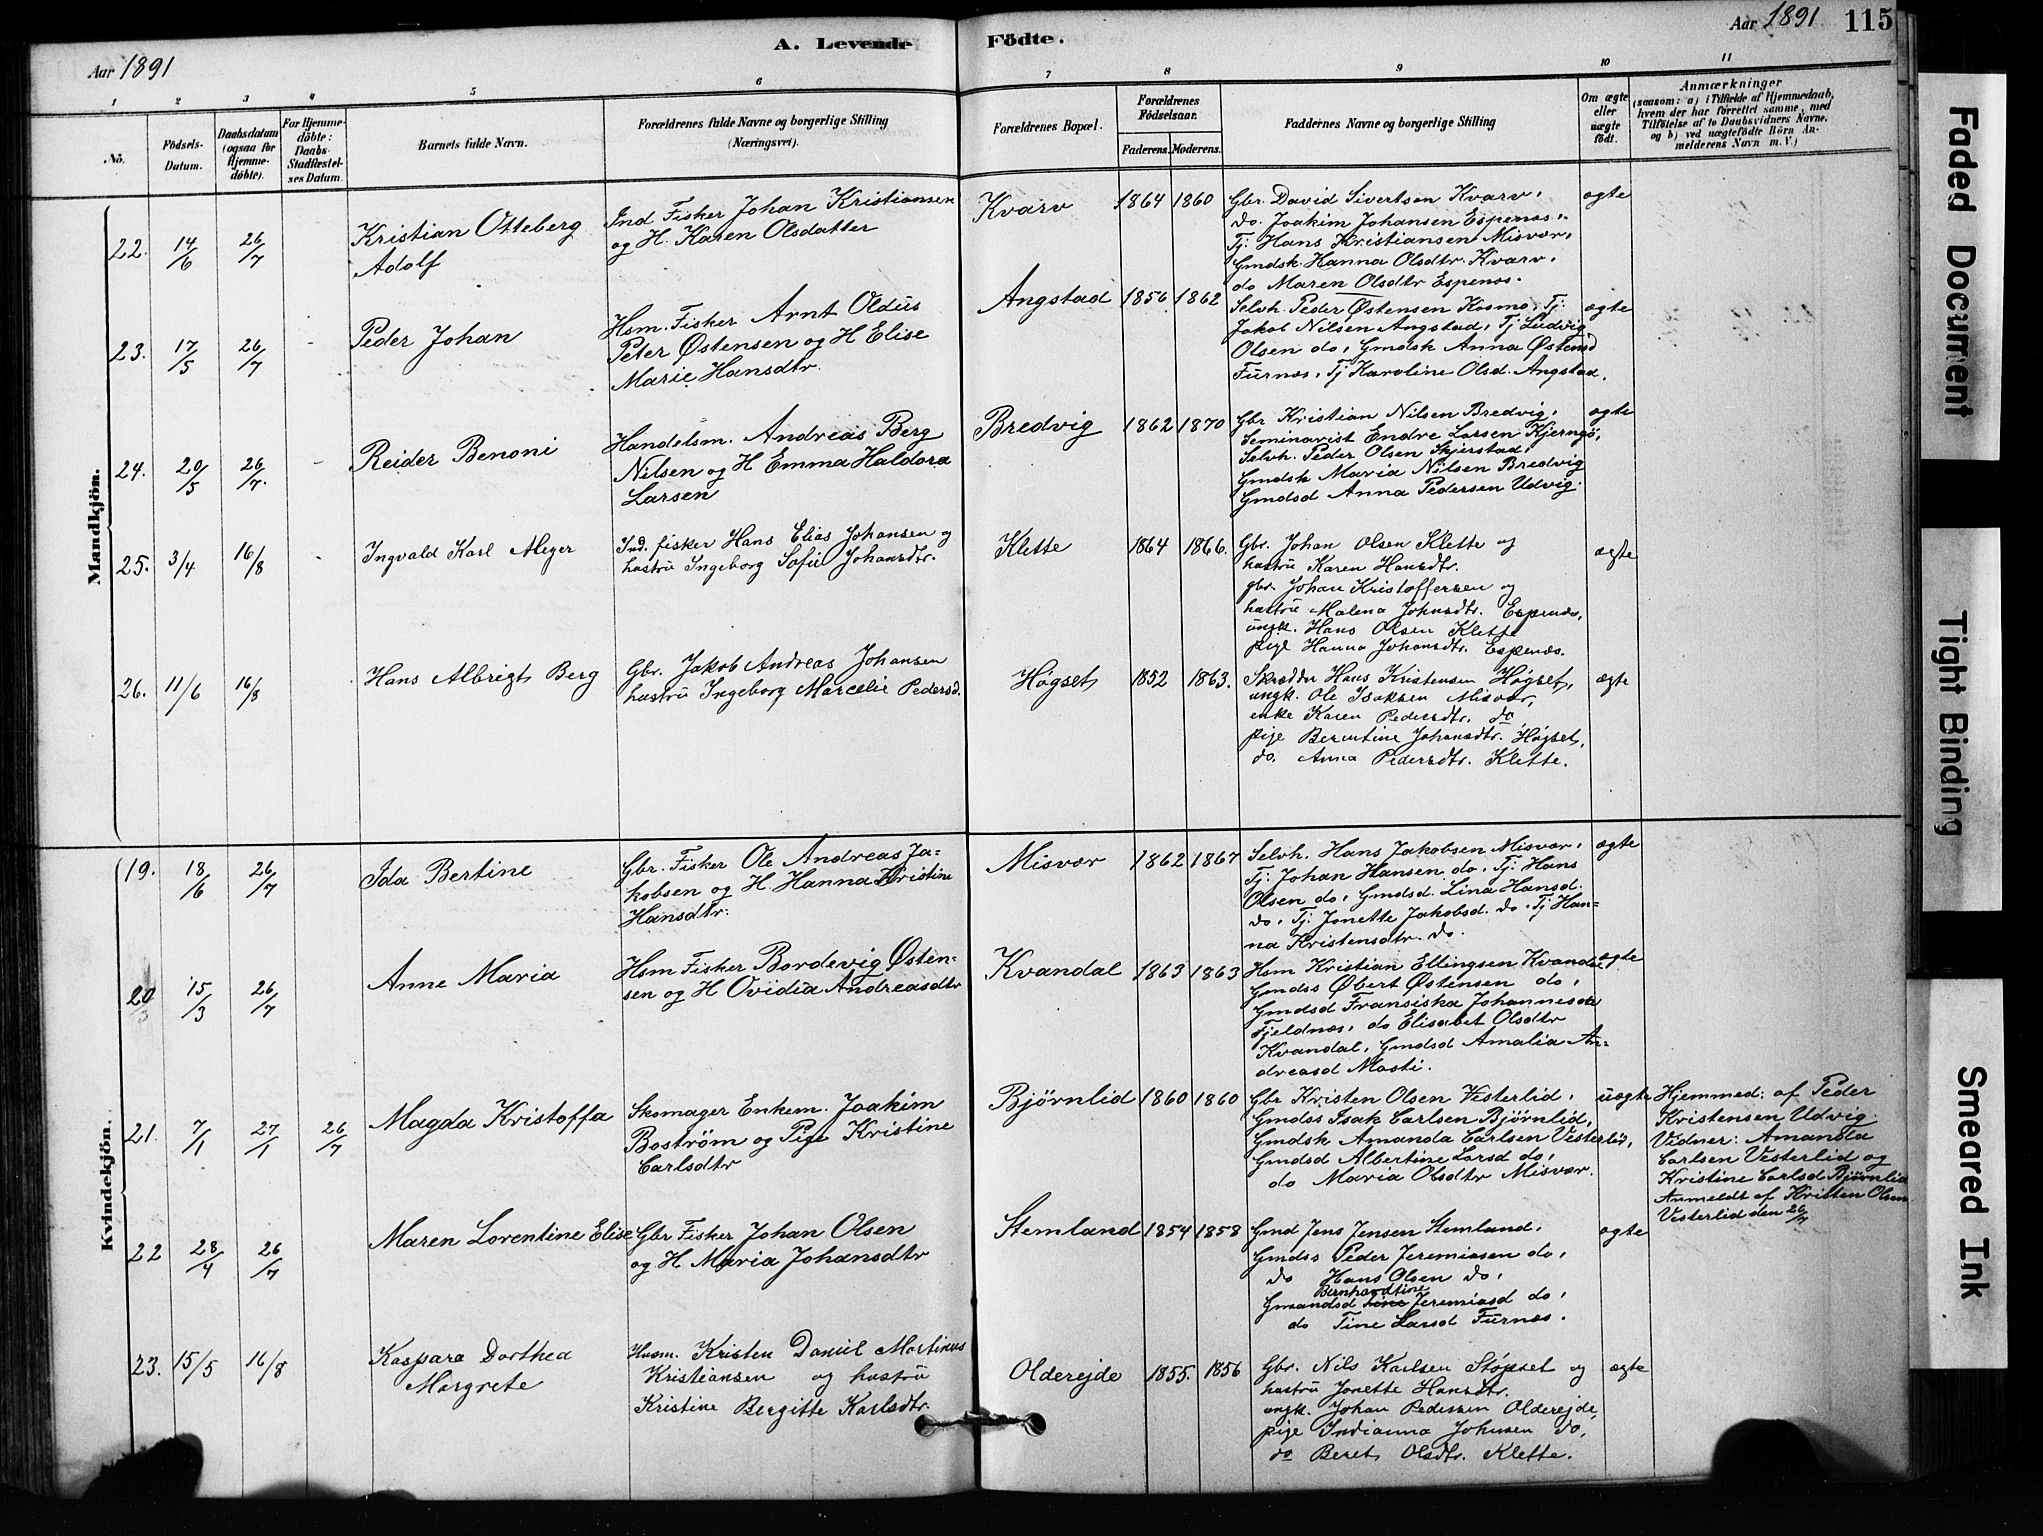 Aar 1891
A. Levende Födte.
Aar 1891
115
1 2 3 4 5 6 7 8 9 10 11
No.
Födsels-
Datum.
Daabsdatum
(ogsaa for
Hjemme-
döbte).
For Hjemme-
döbte:
Daabs-
Stadfæstel-
ses Datum.
Barnets fulde Navn.
Forældrenes fulde Navne og borgerlige Stilling
(Næringsvei).
Forældrenes Bopæl.
Forældrenes
Födselsaar.
Faderens. Moderens.
Faddernes Navne og borgerlige Stilling
Om ægte
eller
uægte
födt.
Anmærkninger
(saasom: a) i Tilfælde af Hjemmedaab,
hvem der har forrettet samme, med
Tilföielse af to Daabsvidners Navne.
og b) ved uægtefödte Börn An-
melderens Navn m. V.)
Mandkjön.
22. 14/6 26/7
Kristian Otteberg
Adolf
Ind Fisker Johan Kristiansen
og H. Karen Olsdatter
Kvarv
1864 1860
Gbr. David Sivertsen Kvarv,
do. Joakim Johansen Espenæs,
Tj. Hans Kristiansen Misvær,
Gmdsk. Hanna Olsdtr. Kvarv,
do Maren Olsdtr Espenæs.
ægte
23. 17/5 26/7 -
Peder Johan
Hsm. Fisker Arnt Oldus
Peter Østensen og H Elise
Marie Hansdtr.
Angstad
1856 1862
Selvh. Peder Østensen Kosmo, Tj.
Jakob Nilsen Angstad, Tj Ludvig
Olsen do, Gmdsk Anna Østensd
Furnæs, Tj Karoline Olsd. Angstad.
ægte
24. 20/5 26/7. -
Reider Benoni
Handelsm. Andreas Berg
Nilsen og H Emma Haldora
Larsen
Bredvig
1862 1870
Gbr Kristian Nilsen Bredvig,
Seminarist Endre Larsen Kjerngö,
Selvh. Peder Olsen Skjerstad,
Gmdsk Maria Nilsen Bredvig
Gmdsd Anna Pedersen Udvig.
ægte
25. 3/4 16/8 -
Ingvald Karl Meyer
Ind. fisker Hans Elias Johansen og
hustru Ingeborg Sofie Johansdtr.
Klette
1864 1866.
Gbr. Johan Olsen Klette og
hustru Karen Hansdtr.
gbr. Johan Kristoffersen og
hustru Malena Johnsdtr. Espenæs,
ungk. Hans Olsen Klette
pige Hanna Johansdtr. Espenæs.
ægte
26. 11/6 16/8
Hans Albrigt Berg
Gbr. Jakob Andreas Johansen
hustru Ingeborg Marcelie Pedersd.
Høgset
1852 1863.
Skrædder Hans Kristensen Høgset,
ungk. Ole Isaksen Misvær,
enke Karen Pedersdtr. do
pige Berentine Johansdtr. Høgset,
do. Anna Pedersdtr. Klette.
ægte
Kvindekjön.
19. 18/6 26/7
Ida Bertine
Gbr. Fisker Ole Andreas Ja-
kobsen og H. Hanna Kristine
Hansdtr.
Misvær
1862 1867
Selvh. Hans Jakobsen Misvær,
Tj: Johan Hansen do, Tj. Hans
Olsen do, Gmdsd. Lina Hansd.
do, Tj. Jonette Jakobsd. do. Tj Han=
na Kristensdtr. do.
ægte
20 15/3 26/7
Anne Maria
Hsm Fisker Bordevig Østen-
sen og H Ovidia Andreasdtr
Kvandal
1863 1863
Hsm Kristian Ellingsen Kvandal
Gmdss Øbert Østensen do,
Gmdsd Fransiska Johannesdtr
Fjeldnæs, do Elisabet Olsdtr
Kvandal, Gmdsd Amalia An=
dreasd Mosti.
ægte
21. 7/1 27/1 26/7
Magda Kristoffa
Skomager Enkem. Joakim
Boström og Pige Kristine
Carlsdtr
Bjørnlid
1860 1860
Gbr Kristen Olsen Vesterlid,
Gmdss Isak Carlsen Bjørnlid,
Gmdsk Amanda Carlsen Vesterlid,
Gmdsd Albertine Larsd do,
do Maria Olsdtr Misvær.
uægte
Hjemmed: af Peder
Kristensen Udvig.
Vidner: Amanda
Carlsen Vesterlid og
Kristine Carlsd Bjørnlid
Anmeldt af Kristen Olsen
Vesterlid den 26/7
22 28/4 26/7
Maren Lorentine Elise
Gbr Fisker Johan Olsen
og H Maria Johansdtr
Stemland
1854 1858
Gmd Jens Jensen Stemland,
Gmdss Peder Jeremiasen do,
do Hans Olsen do,
Bernhardtine
Gmandsd Jeremiasd do,
do Tine Larsd Furnæs.
ægte
23. 15/5 16/8
Kaspara Dorthea
Margrete
Husm. Kristen Daniel Martinus
Kristiansen og hustru
Kristine Bergitte Karlsdtr.
Olderejde
1855. 1856
Gbr. Nils Karlsen Støpset og
hustru Jonette Hansdtr.
ungk. Johan Pedersen Olderejde,
pige Indianna Johnsen do,
do Beret Olsdtr. Klette.
ægte
Faded Document
Tight Binding
Smeared Ink